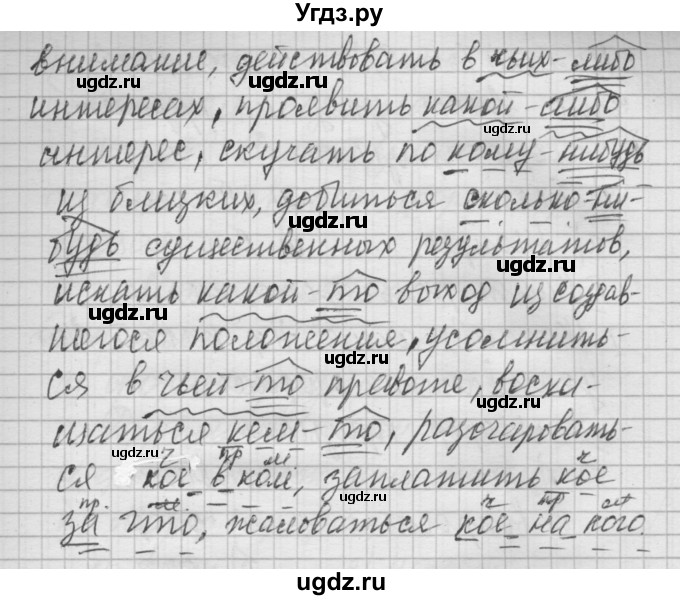 Угдз.ру
внимание, действовать в чьих-либо
интересах, проявить какой-либо
интерес, скучать по кому-нибудь
из близких, добиться сколько-ни-
будь существенных результатов,
искать какой-то выход из создав-
шегося положения, усомнить-
ся в чьей-то правоте, восхи-
щаться кем-то, разочаровать-
ч пр м ч
ся кое в ком, заплатить кое
пр. ч пр
за что, жаловаться кое на кого.
ugdz.ru